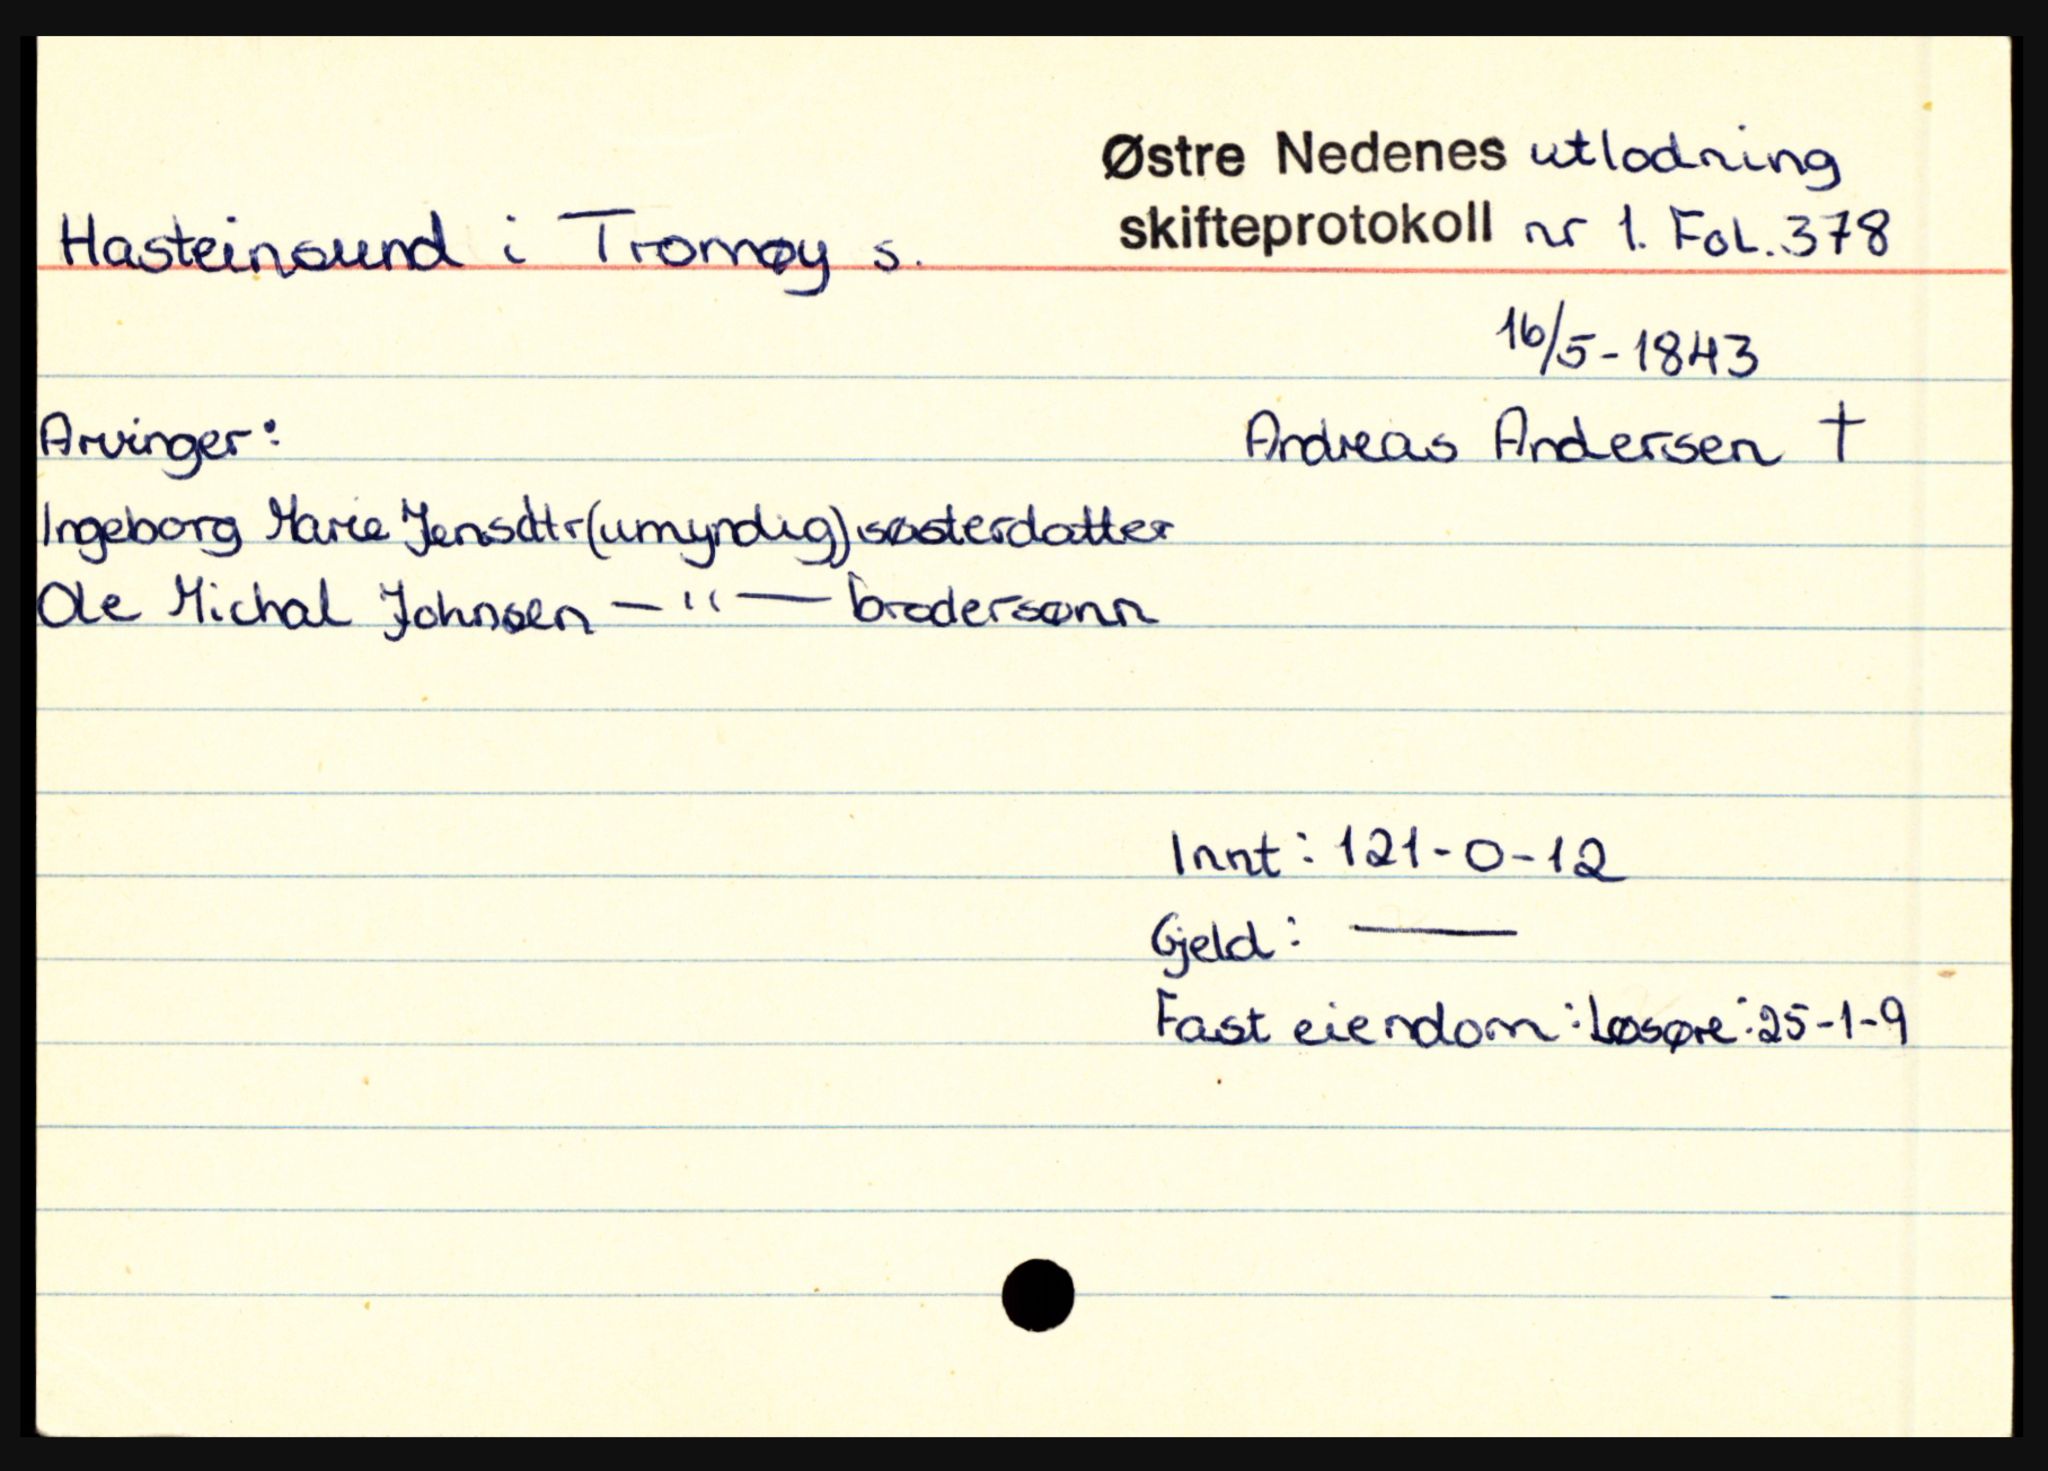 Østre Nedenes utlodning
Hasteinsund i Tromøy s. skifteprotokoll nr 1. Fol. 378
16/5-1843
Arvinger: Andreas Andersen †
Ingeborg Marie Jensdtr (umyndig) søsterdatter
Ole Michal Johnsen — " — brodersønn
Innt: 121-0-12
Gjeld: —
Fast eiendom: Løsøre: 25-1-9